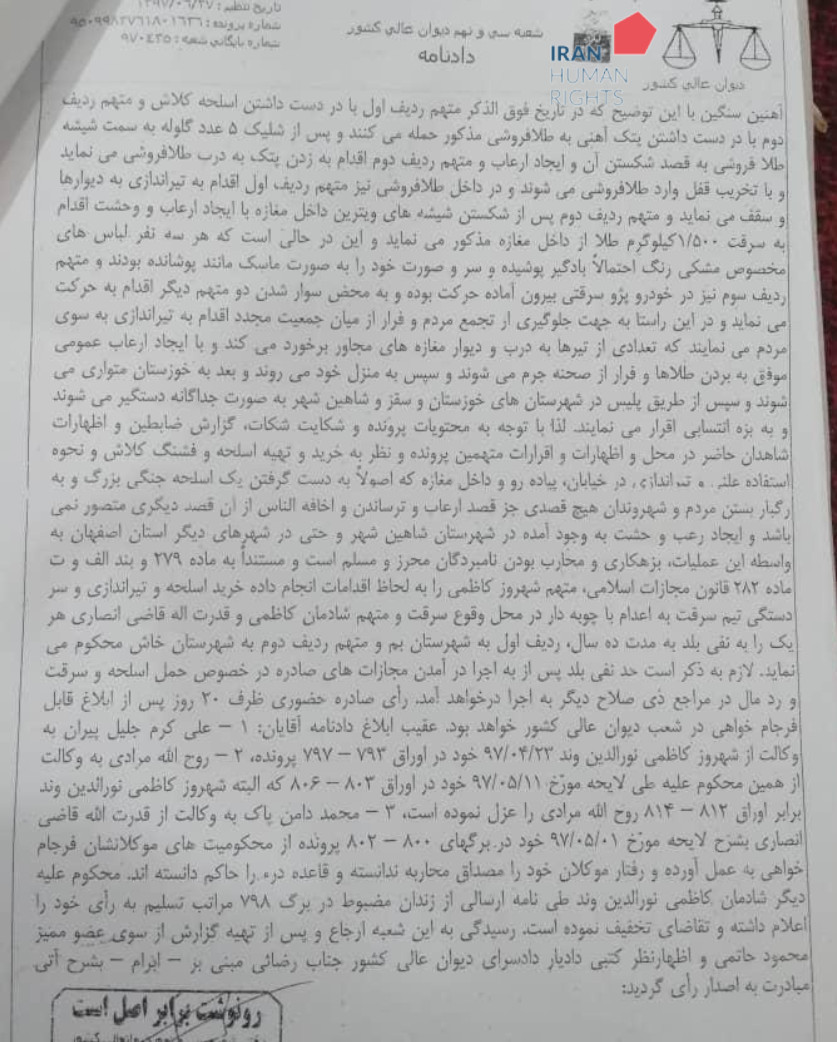 تاریخ تنظیم : ۱۳۹۷/۰۶/۲۷
شماره پرونده : ۹۵۰۹۹۸۳۷۶۱۸۰۱۶۳۶
شماره بایگانی شعبه : ۹۷۰۴۳۵
شعبه سی و نهم دیوان عالی کشور
دادنامه
IRAN
HUMAN
RIGHTS
دیوان عالی کشور
آهنین سنگین با این توضیح که در تاریخ فوق الذکر متهم ردیف اول با در دست داشتن اسلحه کلاش و متهم ردیف
دوم با در دست داشتن پتک آهنی به طلافروشی مذکور حمله می کنند و پس از شلیک ۵ عدد گلوله به سمت شیشه
طلا فروشی به قصد شکستن آن و ایجاد ارعاب و متهم ردیف دوم اقدام به زدن پتک به درب طلافروشی می نماید
و با تخریب قفل وارد طلافروشی می شوند و در داخل طلافروشی نیز متهم ردیف اول اقدام به تیراندازی به دیوارها
و سقف می نماید و متهم ردیف دوم پس از شکستن شیشه های ویترین داخل مغازه با ایجاد ارعاب و وحشت اقدام
به سرقت ۱/۵۰۰کیلوگرم طلا از داخل مغازه مذکور می نماید و این در حالی است که هر سه نفر لباس های
مخصوص مشکی رنگ احتمالاً بادگیر پوشیده و سر و صورت خود را به صورت ماسک مانند پوشانده بودند و متهم
ردیف سوم نیز در خودرو پژو سرقتی بیرون آماده حرکت بوده و به محض سوار شدن دو متهم دیگر اقدام به حرکت
می نماید و در این راستا به جهت جلوگیری از تجمع مردم و فرار از میان جمعیت مجدد اقدام به تیراندازی به سوی
مردم می نمایند که تعدادی از تیرها به درب و دیوار مغازه های مجاور برخورد می کند و با ایجاد ارعاب عمومی
موفق به بردن طلاها و فرار از صحنه جرم می شوند و سپس به منزل خود می روند و بعد به خوزستان متواری می
شوند و سپس از طریق پلیس در شهرستان های خوزستان و سقز و شاهین شهر به صورت جداگانه دستگیر می شوند
و به بزه انتسابی اقرار می نمایند. لذا با توجه به محتویات پرونده و شکایت شکات، گزارش ضابطین و اظهارات
شاهدان حاضر در محل و اظهارات و اقرارات متهمین پرونده و نظر به خرید و تهیه اسلحه و فشنگ کلاش و نحوه
استفاده علنی و تیراندازی در خیابان، پیاده رو و داخل مغازه که اصولاً به دست گرفتن یک اسلحه جنگی بزرگ و به
رگبار بستن مردم و شهروندان هیچ قصدی جز قصد ارعاب و ترساندن و اخافه الناس از آن قصد دیگری متصور نمی
باشد و ایجاد رعب و حشت به وجود آمده در شهرستان شاهین شهر و حتی در شهرهای دیگر استان اصفهان به
واسطه این عملیات، بزهکاری و محارب بودن نامبردگان محرز و مسلم است و مستنداً به ماده ۲۷۹ و بند الف و ت
ماده ۲۸۲ قانون مجازات اسلامی، متهم شهروز کاظمی را به لحاظ اقدامات انجام داده خرید اسلحه و تیراندازی و سر
دستگی تیم سرقت به اعدام با چوبه دار در محل وقوع سرقت و متهم شادمان کاظمی و قدرت اله قاضی انصاری هر
یک را به نفی بلد به مدت ده سال، ردیف اول به شهرستان بم و متهم ردیف دوم به شهرستان خاش محکوم می
نماید. لازم به ذکر است حد نفی بلد پس از به اجرا در آمدن مجازات های صادره در خصوص حمل اسلحه و سرقت
و رد مال در مراجع ذی صلاح دیگر به اجرا درخواهد آمد. رأی صادره حضوری ظرف ۲۰ روز پس از ابلاغ قابل
فرجام خواهی در شعب دیوان عالی کشور خواهد بود. عقیب ابلاغ دادنامه آقایان: ۱ – علی کرم جلیل پیران به
وکالت از شهروز کاظمی نورالدین وند ۹۷/۰۴/۲۳ خود در اوراق ۷۹۳ – ۷۹۷ پرونده، ۲ – روح الله مرادی به وکالت
از همین محکوم علیه طی لایحه مورّخ ۹۷/۰۵/۱۱ خود در اوراق ۸۰۳ – ۸۰۶ که البته شهروز کاظمی نورالدین وند
برابر اوراق ۸۱۲ – ۸۱۴ روح الله مرادی را عزل نموده است، ۳ – محمد دامن پاک به وکالت از قدرت الله قاضی
انصاری بشرح لایحه مورّخ ۹۷/۰۵/۰۱ خود در برگهای ۸۰۰ – ۸۰۲ پرونده از محکومیت های موکلانشان فرجام
خواهی به عمل آورده و رفتار موکلان خود را مصداق محاربه ندانسته و قاعده درء را حاکم دانسته اند. محکوم علیه
دیگر شادمان کاظمی نورالدین وند طی نامه ارسالی از زندان مضبوط در برگ ۷۹۸ مراتب تسلیم به رأی خود را
اعلام داشته و تقاضای تخفیف نموده است. رسیدگی به این شعبه ارجاع و پس از تهیه گزارش از سوی عضو ممیز
محمود حاتمی و اظهارنظر کتبی دادیار دادسرای دیوان عالی کشور جناب رضائی مبنی بر – ابرام – بشرح آتی
مبادرت به اصدار رأی گردید:
رونوشت برابر اصل است